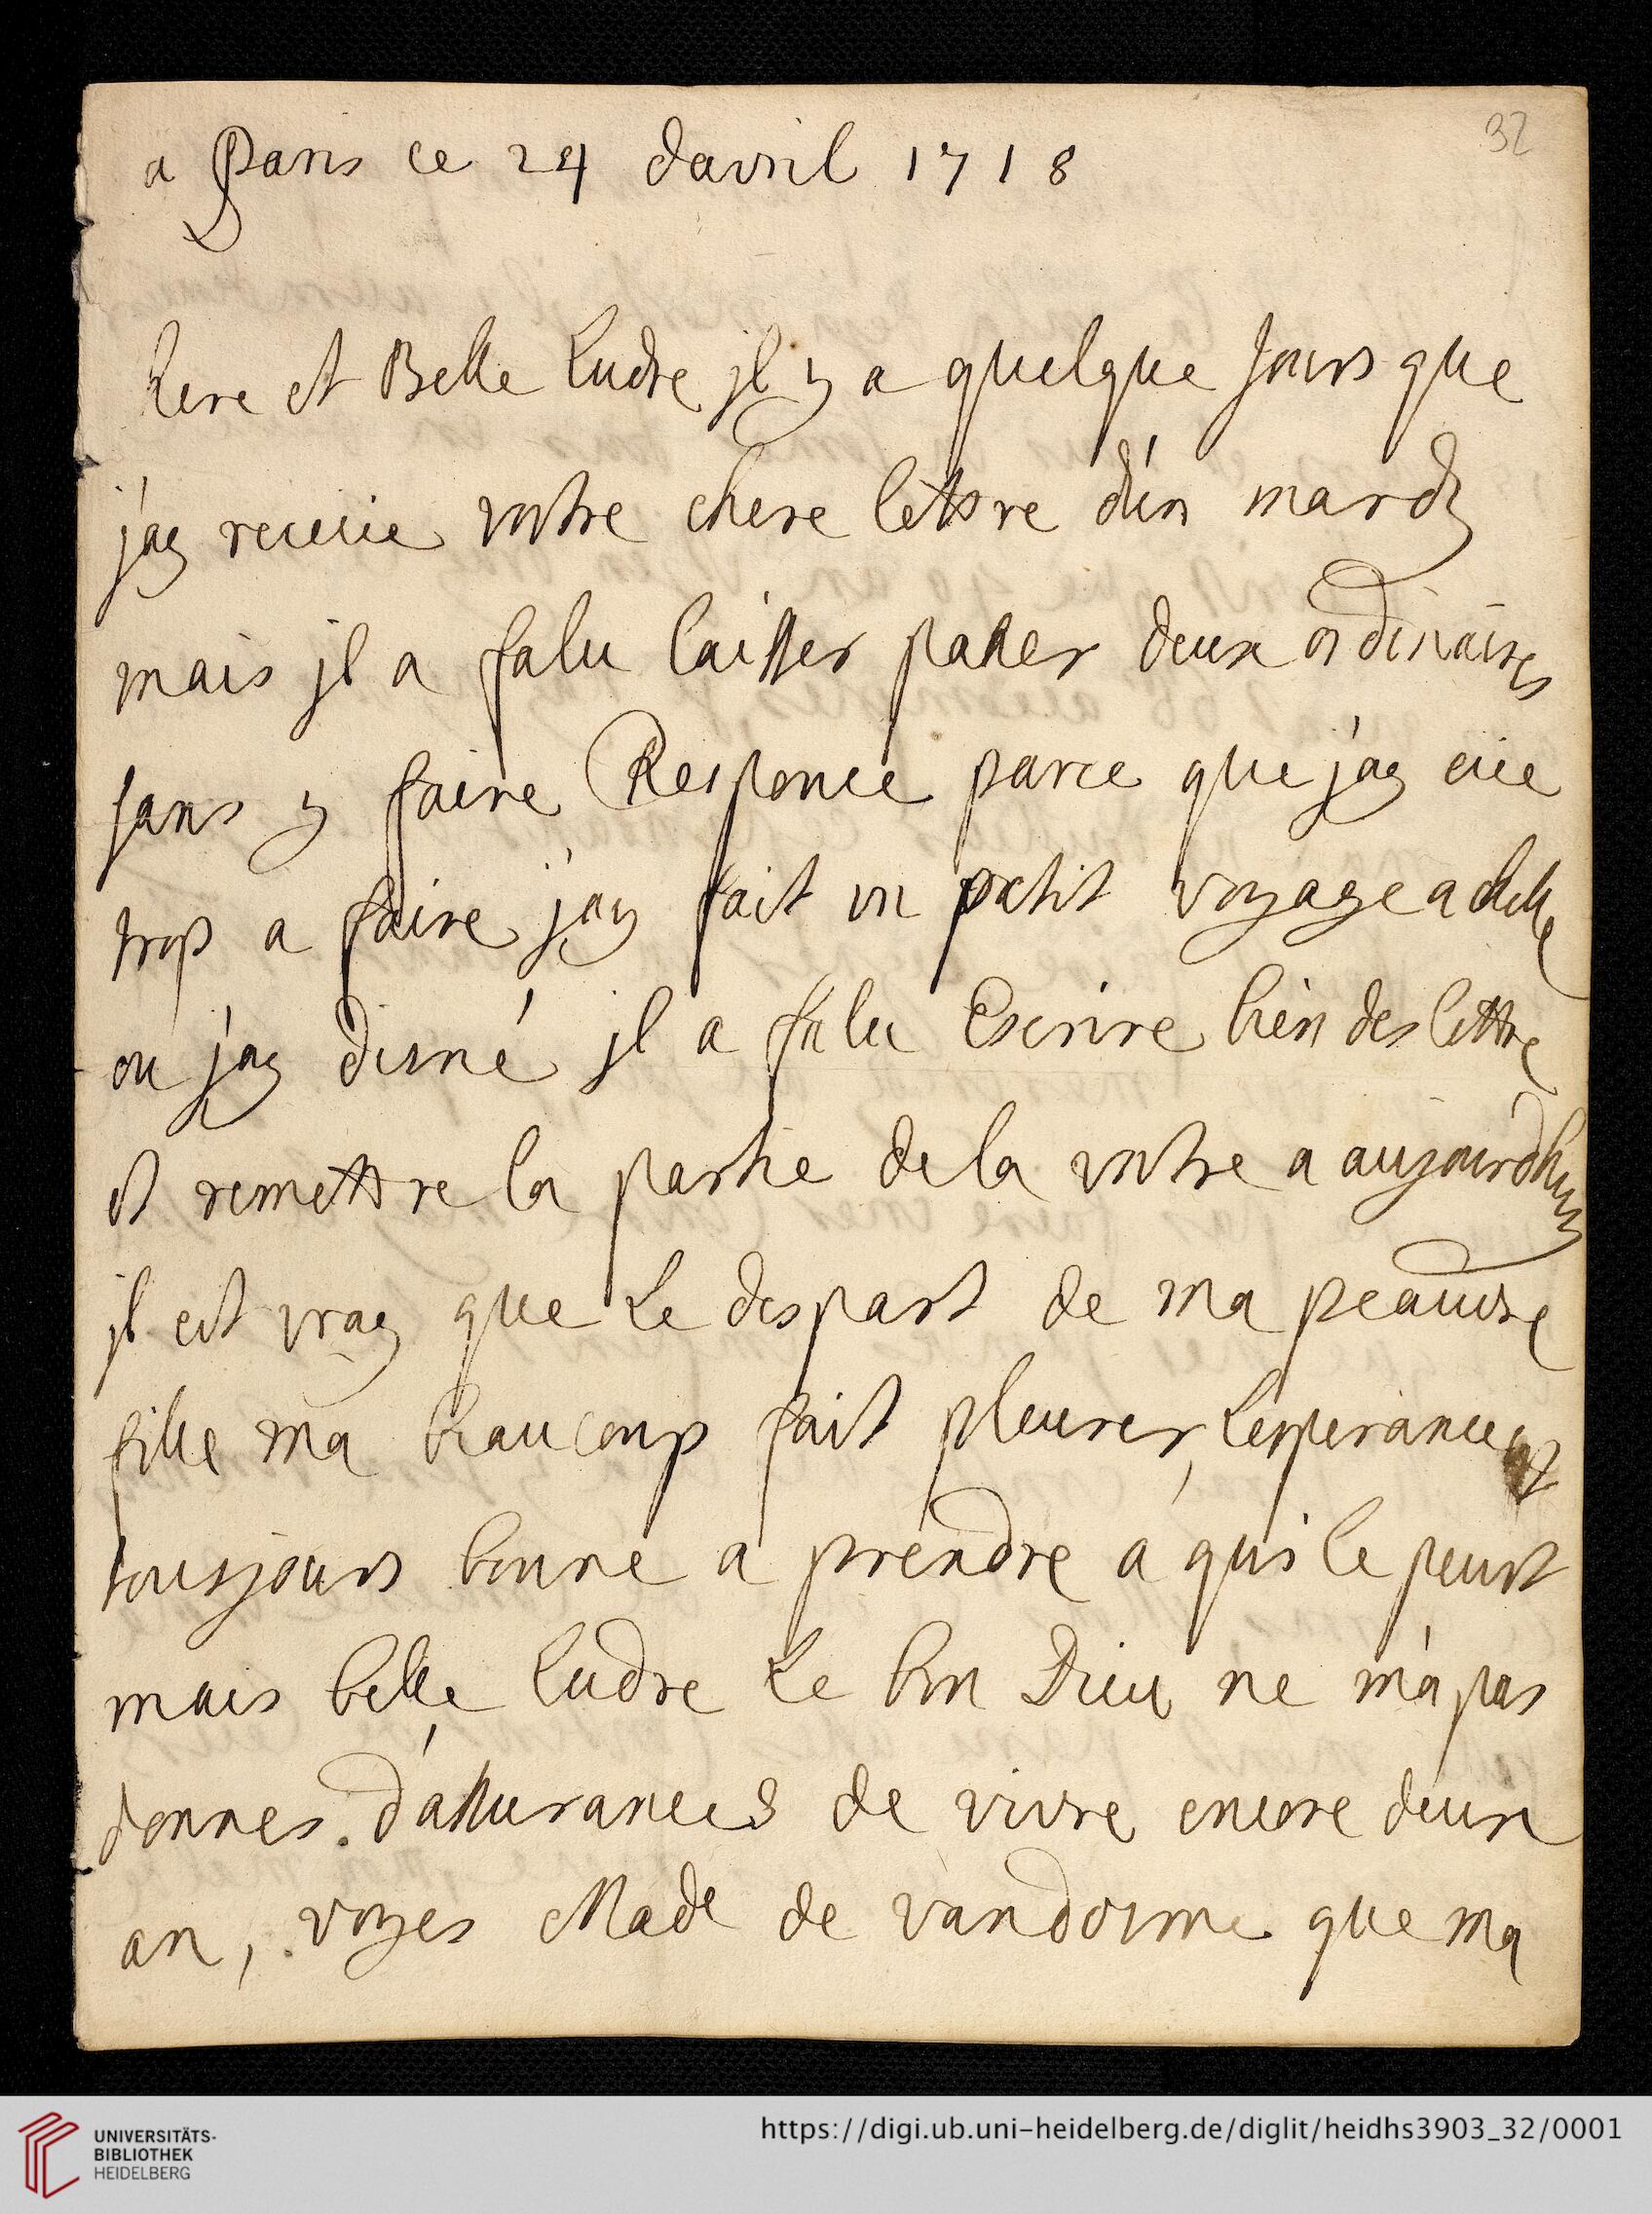 32
a Paris ce 24 davril 1718
chere et Belle Ludre jl y a quelque jours que
j'ay receue vostre chere lettre d'un mardy
mais jl a falu laisser passer deux ordinaires
sans y faire Responce parce que j'ay eüe
trop a faire j'ay fait un petit voyage a chelle
ou j'ay disné jl a falu Escrire bien des lettre
et remettre la partie de la vostre a aujourdhuy
jl est vray que Le despart de ma peauvre
fille ma beaucoup fait pleurer, L'esperance est
tousjours bonne a prendre a qui le peust
mais belle Ludre Le bon Dieu ne m'a pas
donnes d'assurances de vivre encore deux
an, voyes Made de vandosme que ma
UNIVERSITÄTS-
BIBLIOTHEK
HEIDELBERG
https://digi.ub.uni-heidelberg.de/diglit/heidhs3903_32/0001